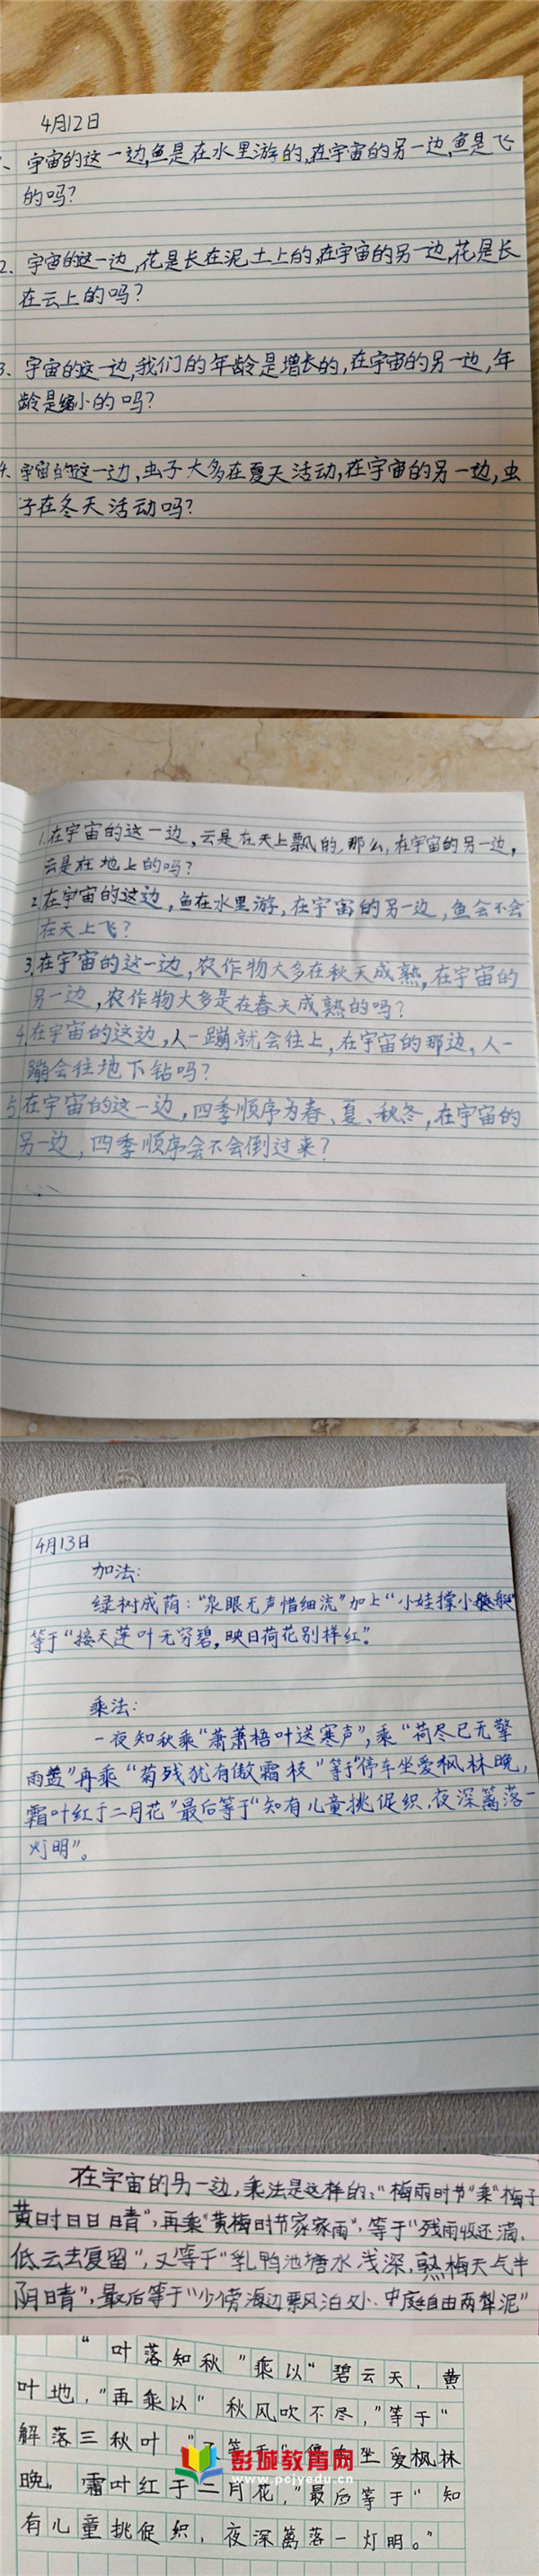 4月12日
1、宇宙的这一边,鱼是在水里游的,在宇宙的另一边,鱼是飞
的吗?
2、宇宙的这一边,花是长在泥土上的,在宇宙的另一边,花是长
在云上的吗?
3、宇宙的这一边,我们的年龄是增长的,在宇宙的另一边,年
龄是缩小的吗?
4、宇宙的这一边,虫子大多在夏天活动,在宇宙的另一边,虫
子在冬天活动吗?
1.在宇宙的这一边,云是在天上飘的,那么,在宇宙的另一边,
云是在地上的吗?
2.在宇宙的这边,鱼在水里游,在宇宙的另一边,鱼会不会
在天上飞?
3.在宇宙的这一边,农作物大多在秋天成熟,在宇宙的
另一边,农作物大多是在春天成熟的吗?
4.在宇宙的这边,人一蹦就会往上,在宇宙的那边,人一
蹦会往地下钻吗?
5.在宇宙的这一边,四季顺序为春、夏、秋冬,在宇宙的
另一边,四季顺序会不会倒过来?
4月13日
加法:
绿树成荫:“泉眼无声惜细流”加上“小娃撑小艇”
等于“接天莲叶无穷碧,映日荷花别样红”。
乘法:
一夜知秋乘“萧萧梧叶送寒声”,乘“荷尽已无擎
雨盖”再乘“菊残犹有傲霜枝”等于“停车坐爱枫林晚,
霜叶红于二月花”最后等于“知有儿童挑促织,夜深篱落一
灯明”。
在宇宙的另一边,乘法是这样的:“梅雨时节”乘“梅子
黄时日日晴”,再乘“黄梅时节家家雨”,等于“残雨收还滴,
低云去复留”,又等于“乳鸭池塘水浅深,熟梅天气半
阴晴”,最后等于“少傍海边飘泊处,中庭自由两犁泥”
“叶落知秋”乘以“碧云天,黄
叶地,”再乘以“秋风吹不尽,”等于“
解落三秋叶,”坐爱枫林
晚,霜叶红于二月花,”最后等于“知
有儿童挑促织,夜深篱落一灯明。”
彭城教育网
www.pcjyedu.cn